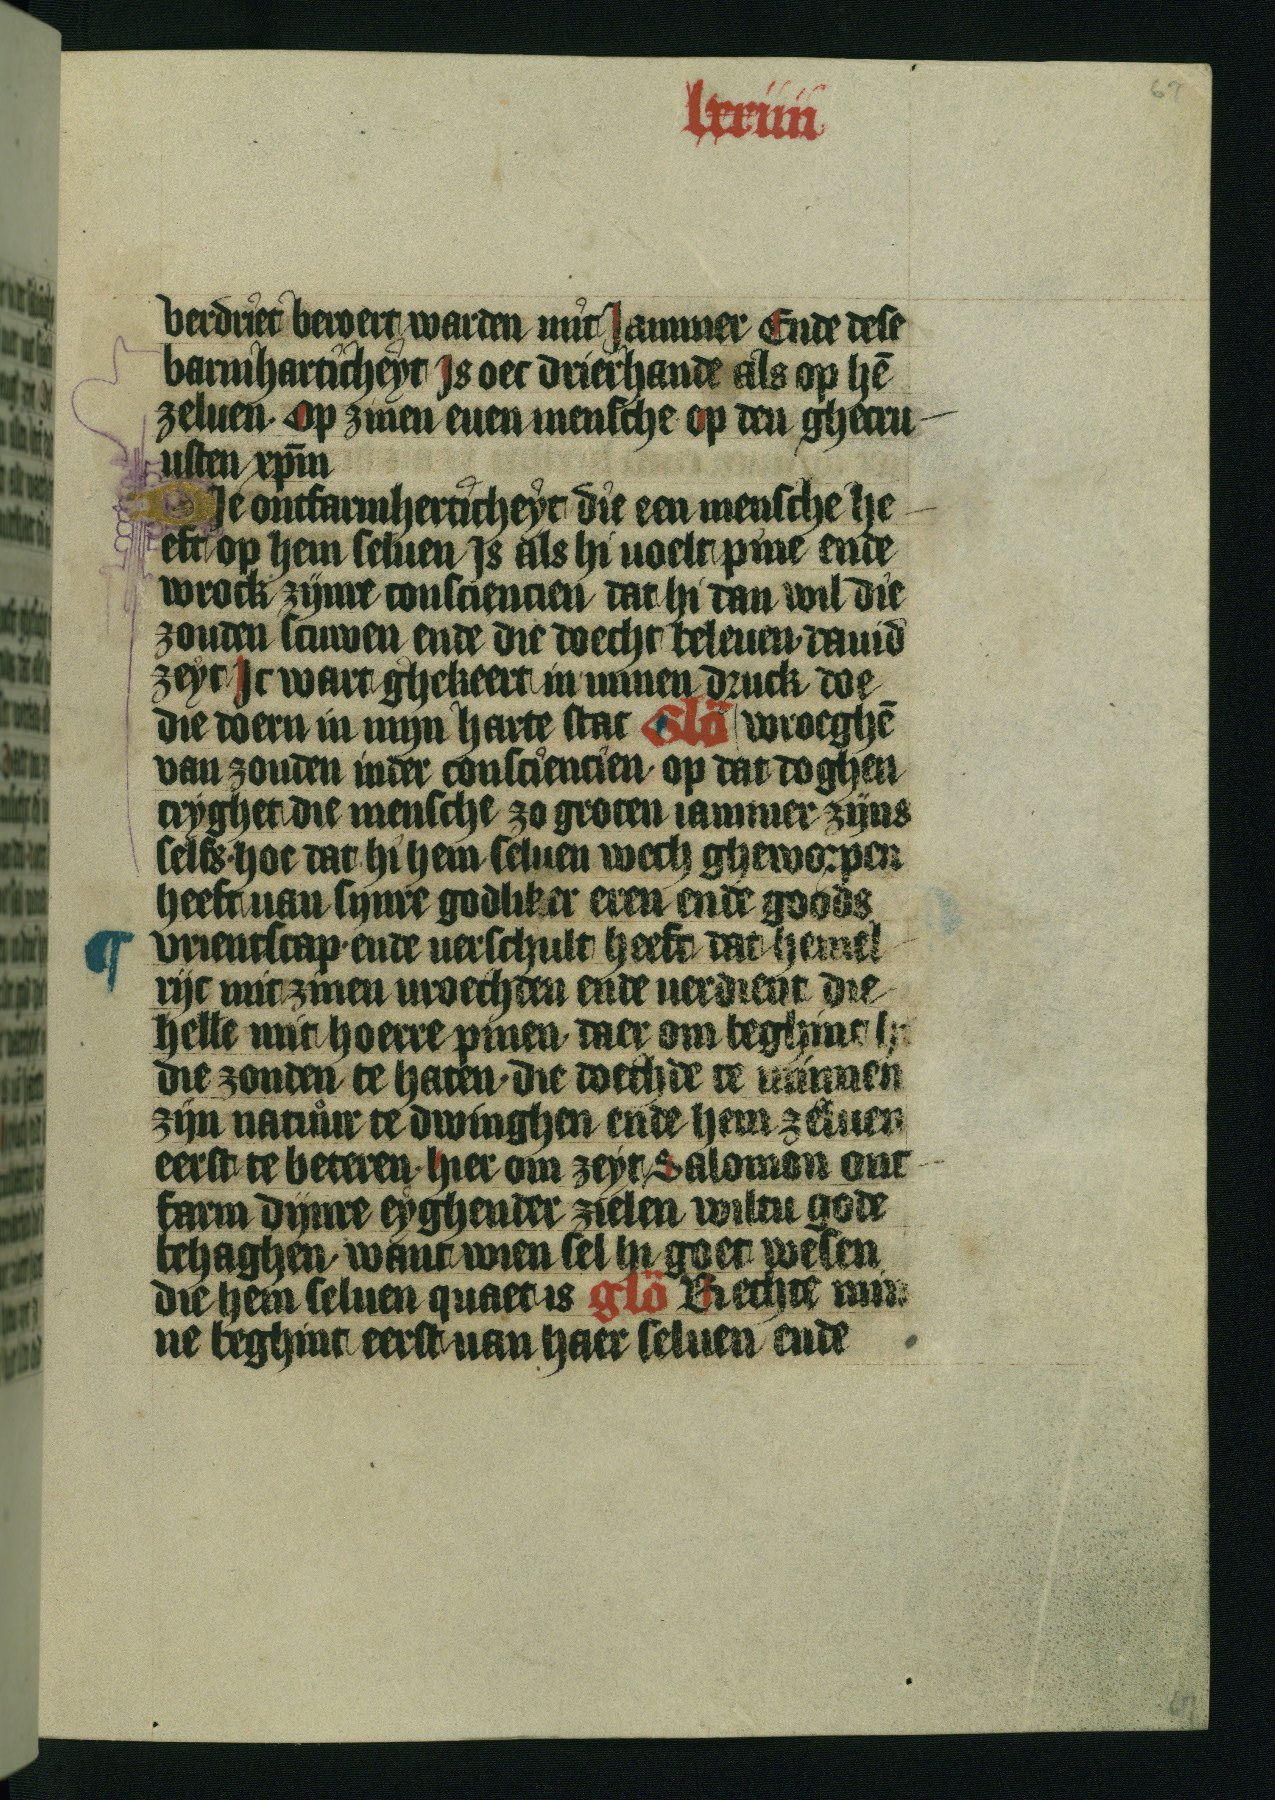 lxxiiii
67
verdriet beroert warden mit Jammer Ende dese
barmharticheyt Js oec drierhande als op hē
zeluen. Op zinen euen mensche op den ghecru
usten xpm̄
Die ontfarmherticheyt die een mensche he
eft op hem seluen Js als hi uoelt pine ende
wrock zijnre consciencien dat hi dan wil die
zonden scuwen ende die doecht beleuen. dauid
zeyt Jc wart ghekeert in minen druck doe
die doern in mijn harte stac Glo̅ wroeghē
van zonden inder consciencien. op dat doghen
cryghet die mensche zo groten iammer zijns
selfs. hoe dat hi hem seluen wech gheworpen
heeft uan sijnre godliker eren ende goods
vrientscap. ende uerschult heeft dat hemel
rijc mit zinen uroechden ende uerdient die
helle mit hoerre pinen. daer om beghint hi
die zonden te haten. die doechde te minnen
zijn natuur te dwinghen ende hem zeluen
eerst te beteren. hier om zeyt Salomon ont
farm dijnre eyghender zielen wiltu gode
behaghen. want wien sel hi goet wesen
die hem seluen quaet is glo̅ Riechte min
ne beghint eerst uan haer seluen ende